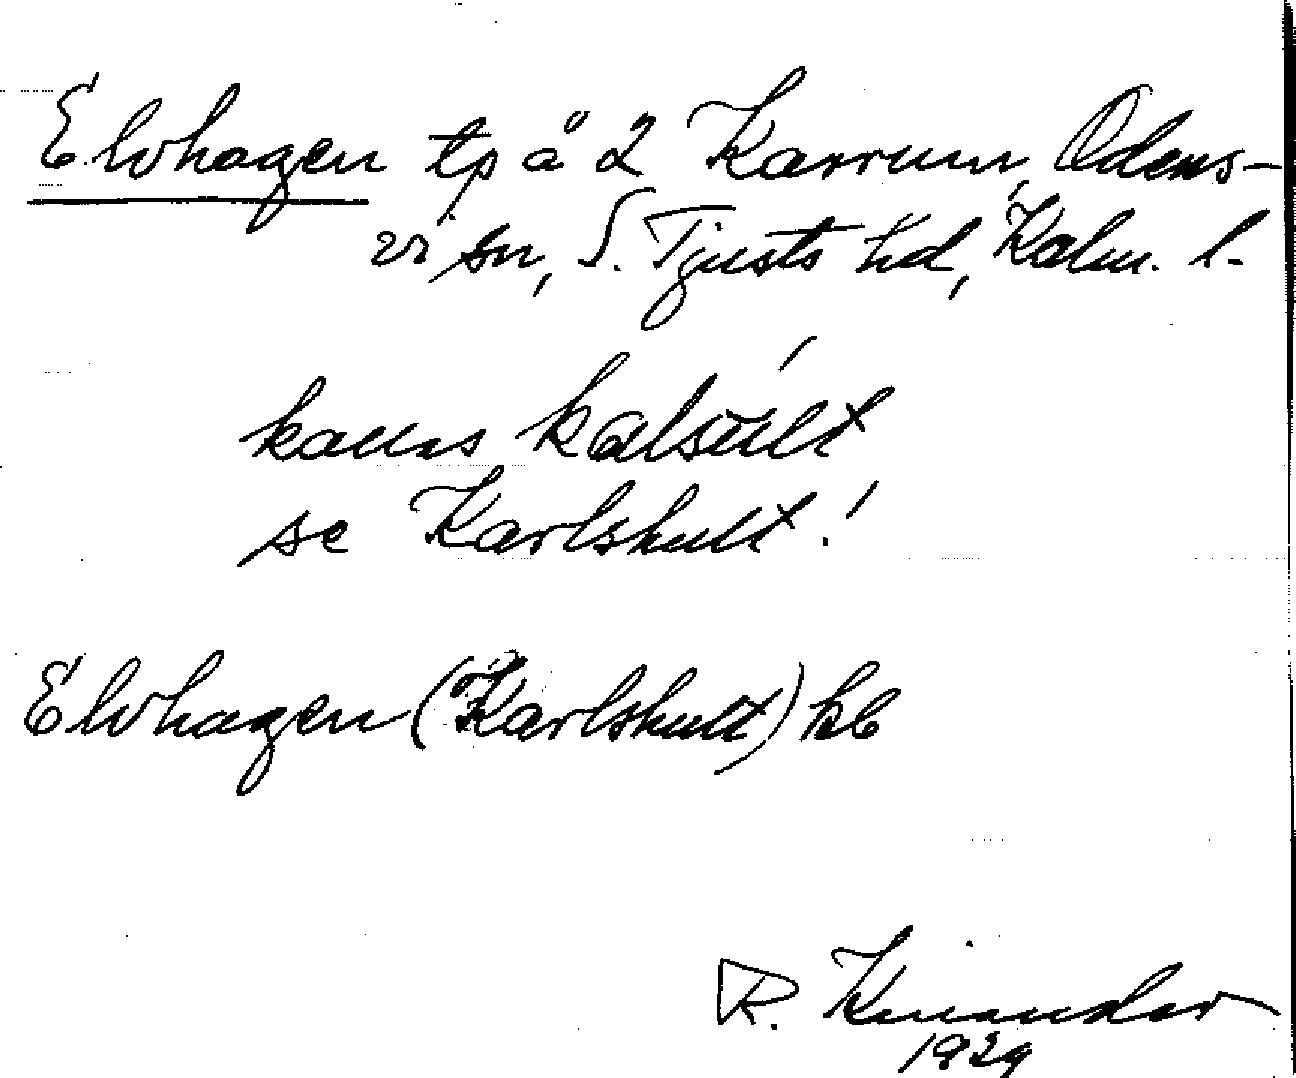 Elvhagen tp å 2 Karrum, Odens-
vi sn, S. Tjusts hd, Kalm. l.
kallas kalsu̇lt
se Karlshult!
Elvhagen (Karlshult) kb
R. Kinander
1929